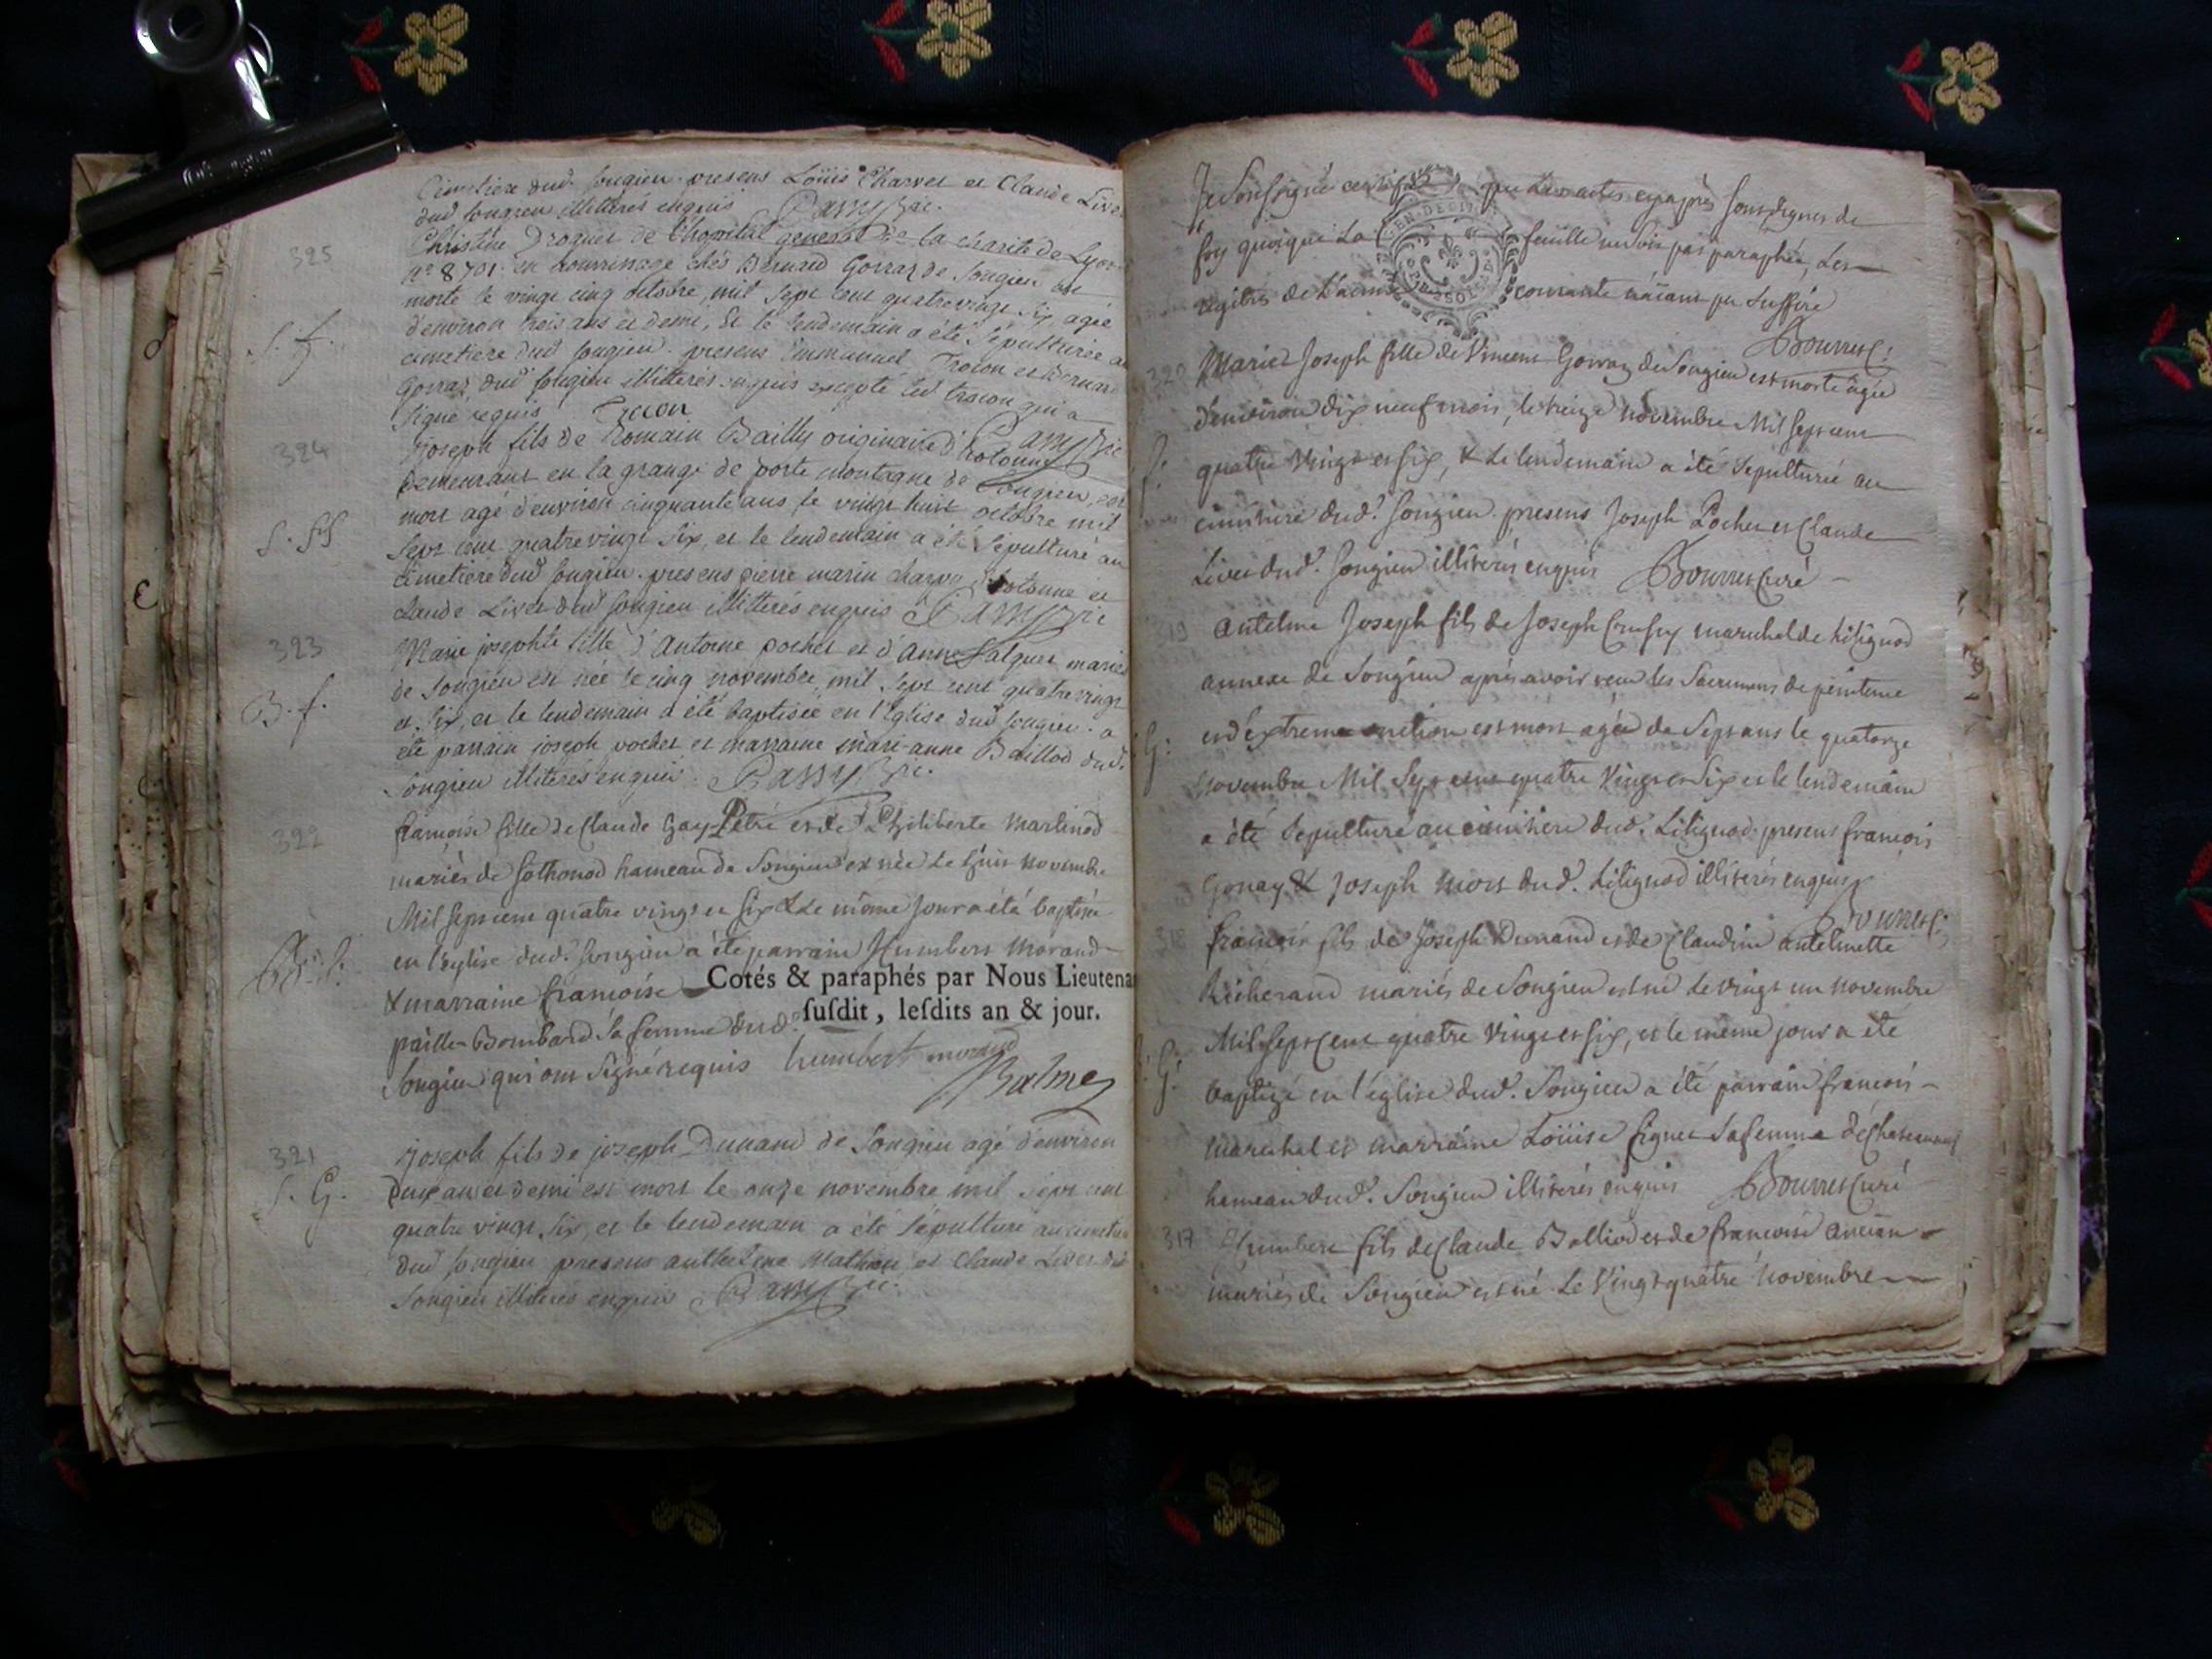 Cimetiere dud songieu. presens Loüis Charvet et Claude Livet
dud songieu illitterés enquis Passy vic.
325
Christine Droguet de l'hopital general de la charité de Lyon
n° 8701. en nourrissage chés Bernard Gorraz de Songieu est
morte le vingt cinq octobre mil sept cent quatrevingt six, agée
S. f.
d'environ trois ans et demi, et le lendemain a été sépulturée au
cimetiere dud songieu. presens Emmanuel Trocon et Bernard
Gorraz dud songieu illitterés enquis excepté led trocon qui a
signé requis Trocon Passy vic
324
joseph fils de Romain Bailly originaire d'hotonne
demeurant en la grange de porte montagne de Songieu, est
mort agé d'environ cinquante ans le vingt huit octobre mil
S. ff
sept cent quatrevingt six, et le lendemain a été sépulturé au
cimetiere dud songieu. presens pierre marin charvy d'hotonne et
claude Livet dud songieu illitterés enquis Passy vic
323
Marie josephte fille d'Antoine pochet et d'Anne falquet mariés
de songieu est née le cinq novembre mil sept cent quatrevingt
B. f.
et six, et le lendemain a été baptisée en l'église dud songieu. a
été parrain joseph pochet et marraine marie-anne Baillod dud.
Songieu illiterés enquis. Passy vic.
322
françoise fille de Claude Gay Pétré et de Philiberte Martinod
mariés de sothonod hameau de Songieu est née le huit novembre
Mil sept cent quatre vingt et six & le même jour a été baptisée
B. f.
en l'eglise dud. songieu a été parrain Humbert Morand
& marraine françoise
Cotés & paraphés par Nous Lieutena
ſuſdit, leſdits an & jour.
paille-Bombard sa femme dud.
Songieu qui ont signé requis humbert morand
Balme
321
joseph fils de joseph Dunand de Songieu agé d'environ
S. G.
deux an et demi est mort le onze novembre mil sept cent
quatre vingt six, et le lendemain a été sépulturé au cimetiere
dud songieu presens anthelme Mathieu et Claude Livet dud
Songieu illiterés enquis Passy vic.
Je soussigné certifie que les actes cy après sont dignes de
foy quoique la feuille ne soit pas paraphée, les
régitres de l'année courante n'aiant pu suffire
Bourret C.
320
Marie Joseph fille de Vincent Gorraz de Songieu est morte agée
d'environ dix neuf mois, le treize novembre Mil sept cent
f.
quatre vingt et six, & le lendemain a été sépulturée au
cimitiere dud. songieu. presens Joseph Pochet et Claude
Livet dud. songieu illiterés enquis Bourret Curé
319
antelme Joseph fils de Joseph marechal de Litignod
annexe de Songieu après avoir reçu les Sacremens de pénitence
G.
et d'extreme onction est mort agé de sept ans le quatorze
novembre Mil Sept cent quatre vingt et six et le lendemain
a été sépulturé au cimitiere dud. Litignod. presens françois
Gonay & Joseph Mort dud. Litignod illiterés enquis
Bourret C.
318
françois fils de Joseph Dunand et de Claudine antelmette
Richerand mariés de Songieu est né le vingt un novembre
Mil sept cent quatre vingt et six, et le même jour a été
G.
baptizé en l'église dud. Songieu a été parrain françois
marechal et marraine Loüise signet sa femme de
hameau dud. Songieu illiterés enquis Bourret Curé
317
Humbert fils de Claude Balliod et de françoise ancian
mariés de Songieu est né le vingt quatre novembre